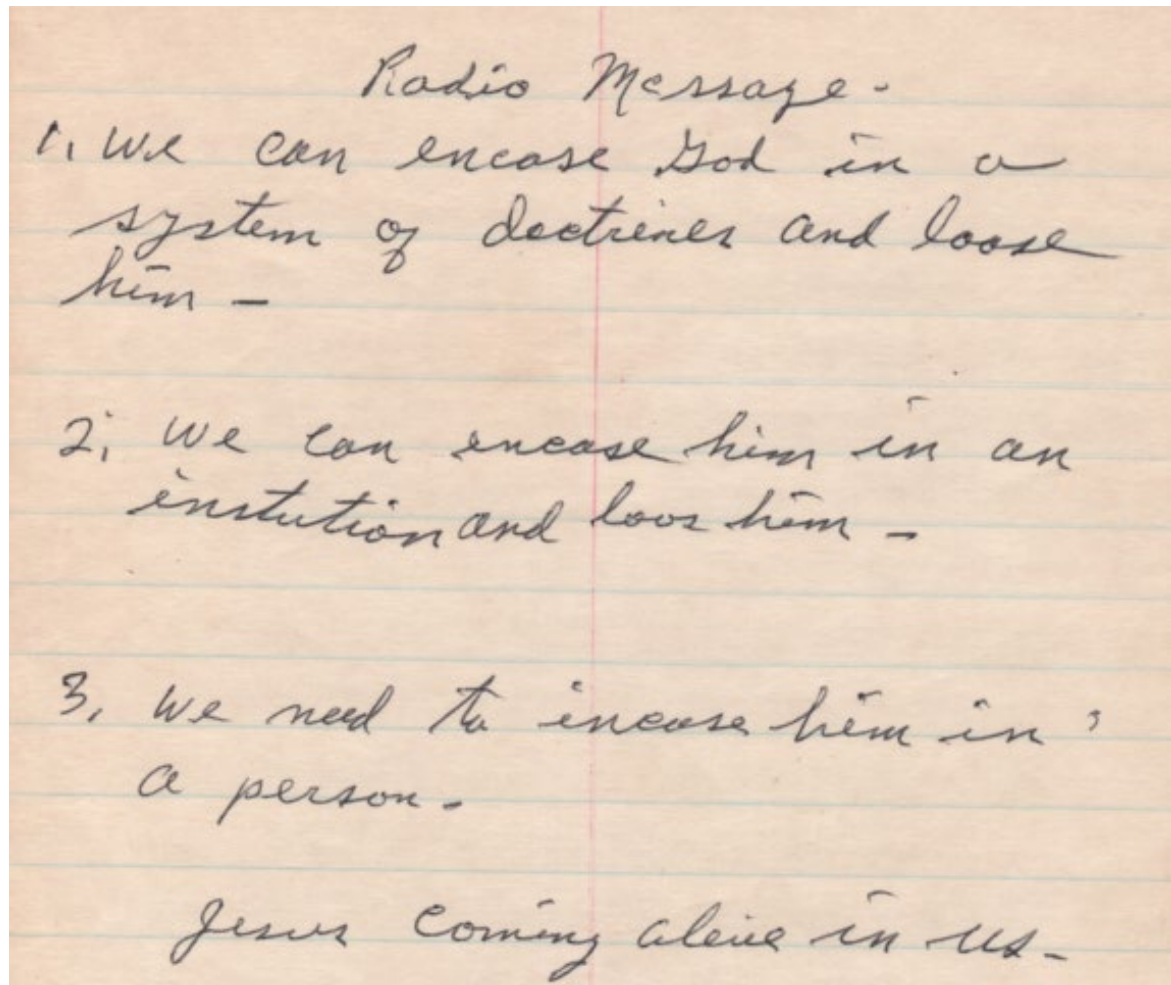 Radio Message -
1, We can encase God in a
system of doctrines and loose
him -
2, We can encase him in an
instution and loos him -
3, We need to incase him in
a person -
Jesus coming alive in us -